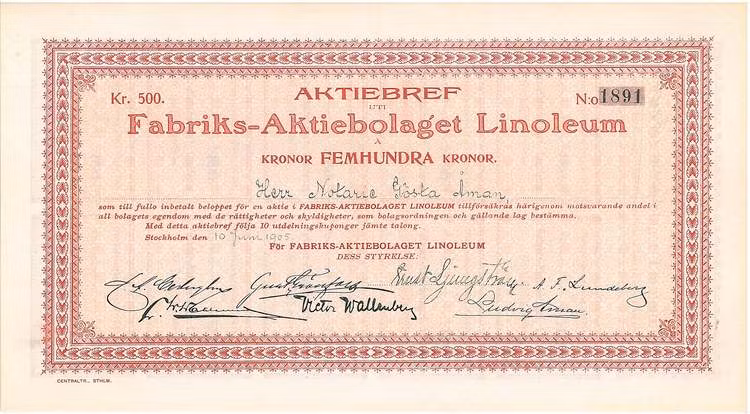 AKTIEBREF
Kr. 500.
UTI
N:o 1891
Fabriks-Aktiebolaget Linoleum
À
KRONOR FEMHUNDRA KRONOR.
Herr Notarie Gösta Åman,
som till fullo inbetalt beloppet för en aktie i FABRIKS-AKTIEBOLAGET LINOLEUM tillförsäkras härigenom motsvarande andel i
all bolagets egendom med de rättigheter och skyldigheter, som bolagsordningen och gällande lag bestämma.
Med detta aktiebref följa 10 utdelningskuponger jämte talong.
Stockholm den 10 Juni 1905
För FABRIKS-AKTIEBOLAGET LINOLEUM
DESS STYRELSE:
Ernst Ljungström A. F. Lundeberg
Victor Wallenberg Ludvig Åman
CENTRALTR., STHLM.